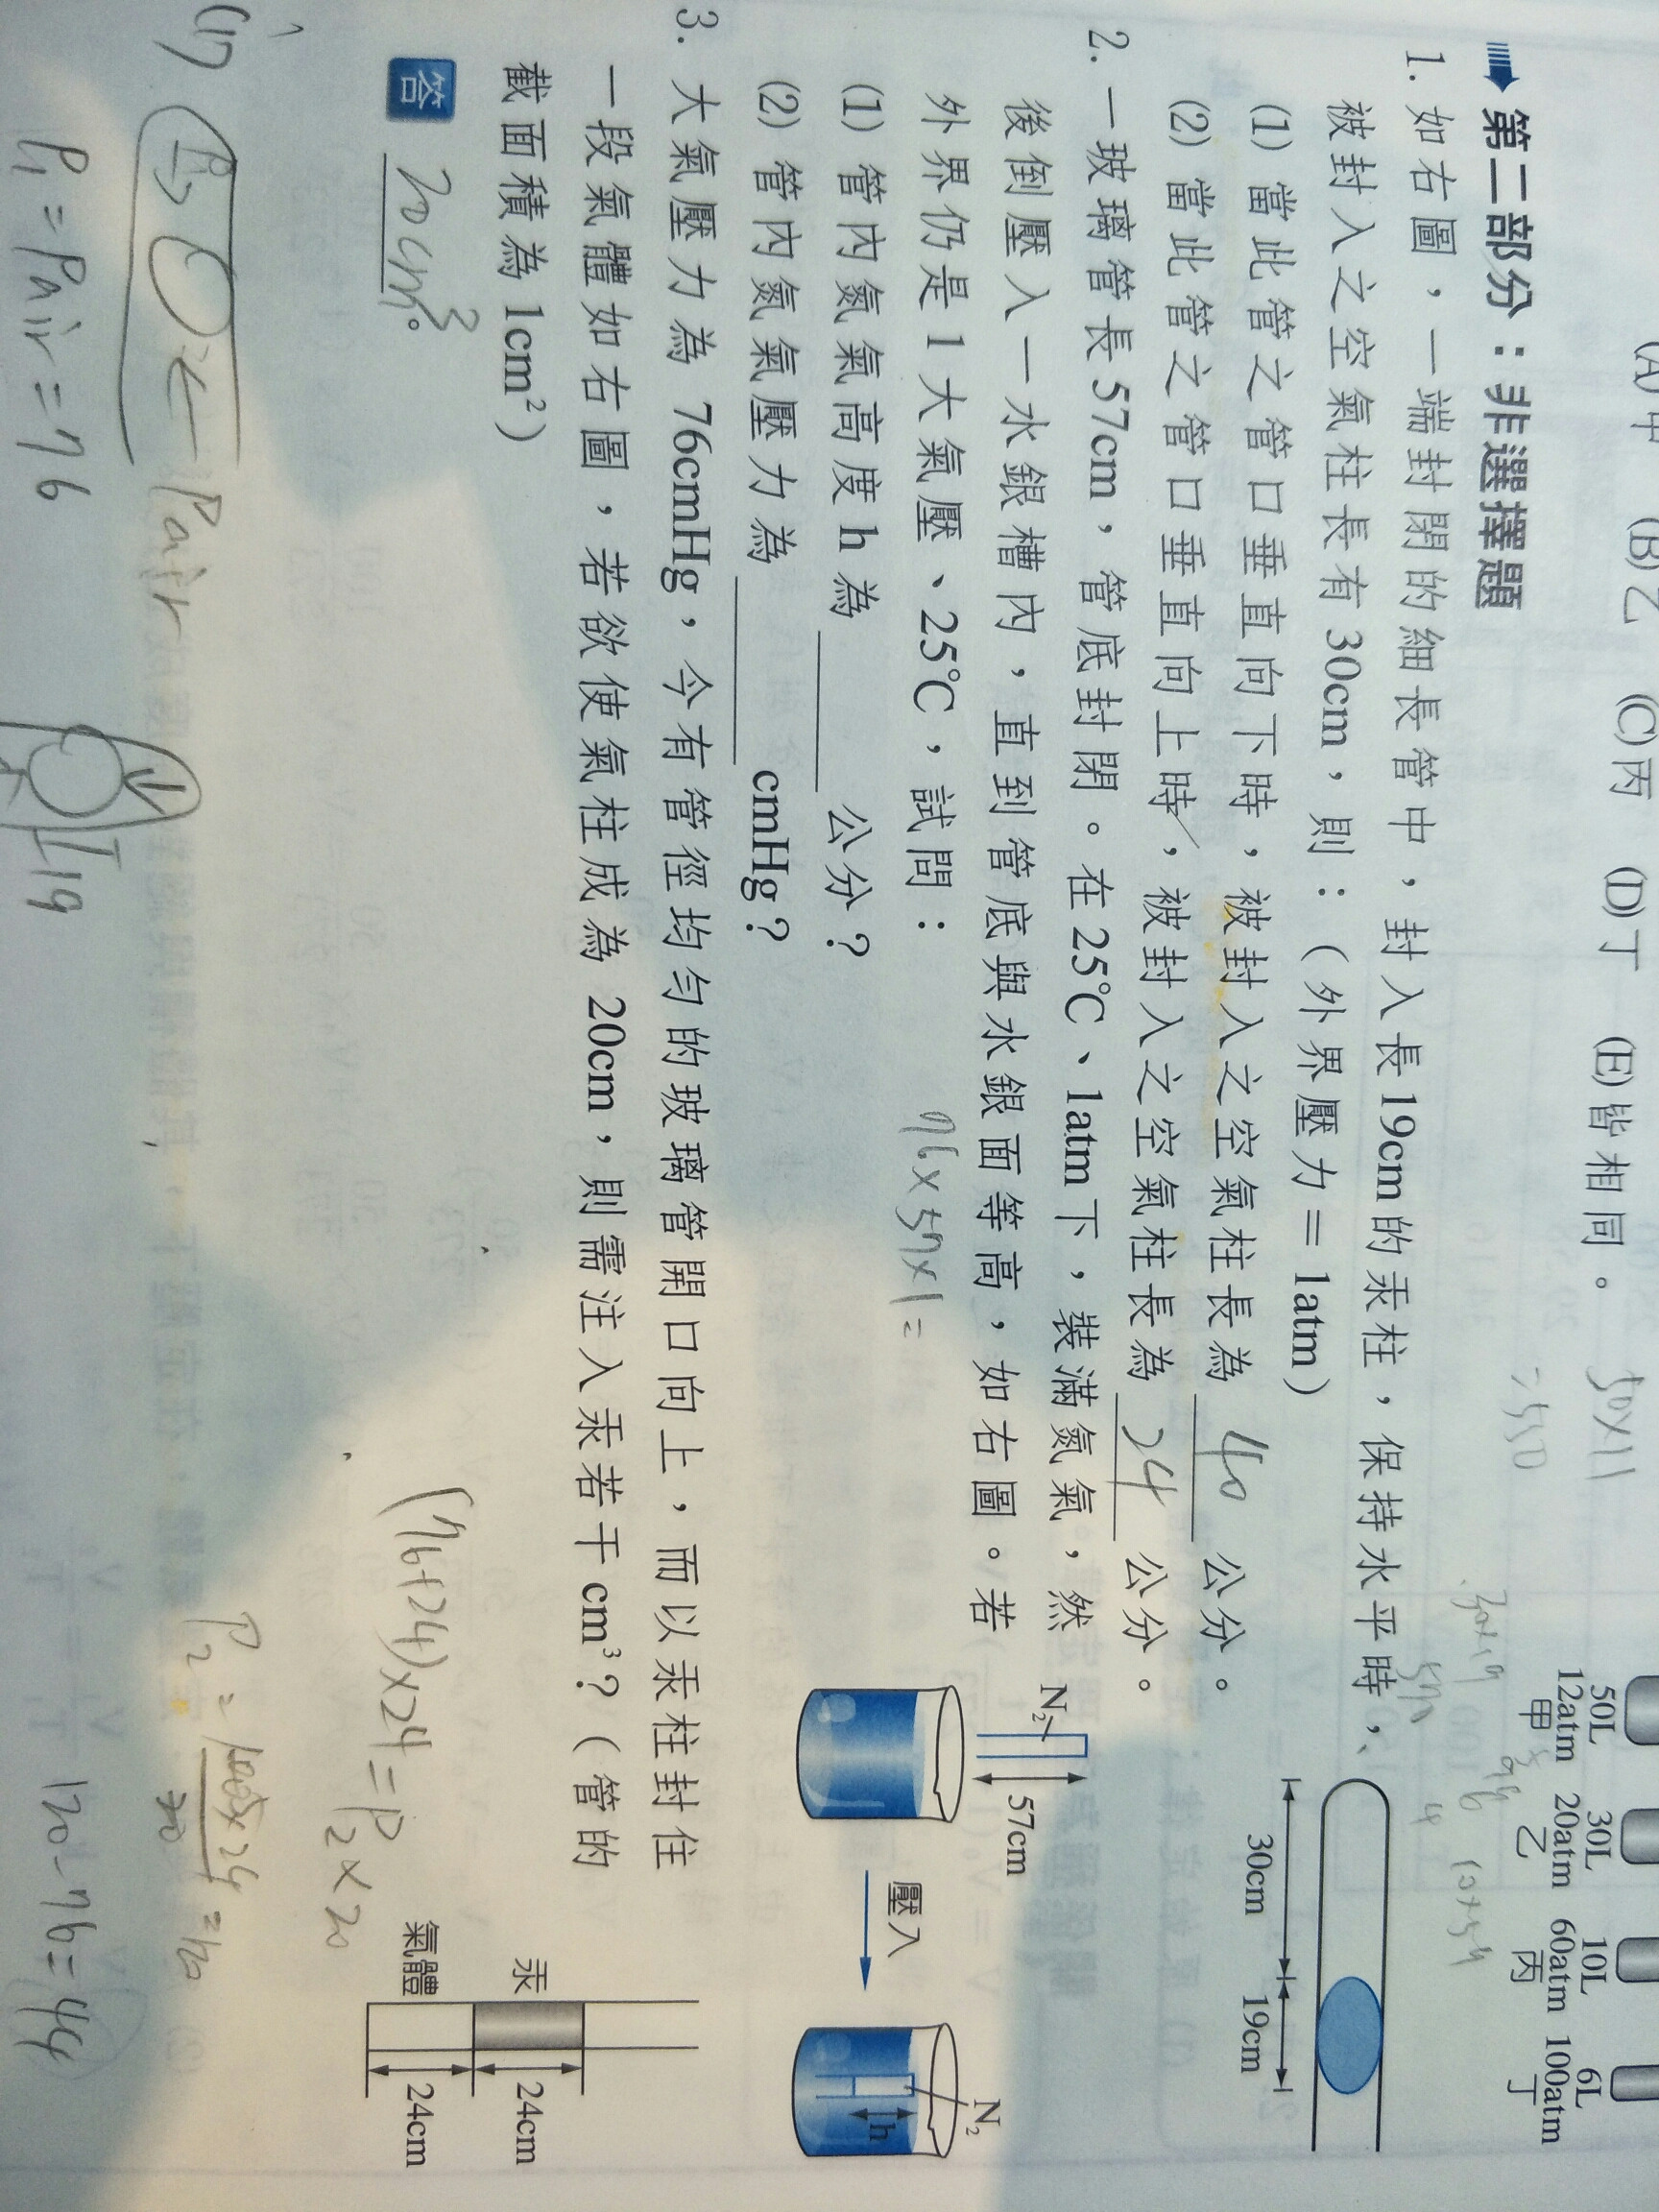 (A)甲　(B)乙　(C)丙　(D)丁　(E)皆相同。
50×11
=550
50L 30L 10L 6L
12atm 20atm 60atm 100atm
甲 乙 丙 丁
第二部分：非選擇題
1. 如右圖，一端封閉的細長管中，封入長19cm的汞柱，保持水平時，
被封入之空氣柱長有30cm，則：（外界壓力＝1atm）
(1) 當此管之管口垂直向下時，被封入之空氣柱長為 40 公分。
(2) 當此管之管口垂直向上時，被封入之空氣柱長為 24 公分。
30cm 19cm
2. 一玻璃管長57cm，管底封閉。在25℃、1atm下，裝滿氮氣，然
後倒壓入一水銀槽內，直到管底與水銀面等高，如右圖。若
外界仍是1大氣壓、25℃，試問：
76×57×1=
(1) 管內氮氣高度h為　　　公分？
(2) 管內氮氣壓力為　　　cmHg？
N₂ 57cm 壓入 N₂ h
3. 大氣壓力為 76cmHg，今有管徑均勻的玻璃管開口向上，而以汞柱封住
一段氣體如右圖，若欲使氣柱成為 20cm，則需注入汞若干cm³？（管的
截面積為1cm²）
汞 24cm
氣體 24cm
答 20cm³。
(76+24)×24=P₂×20
(1)
Pair
P₁=Pair=76
19
120-76=44